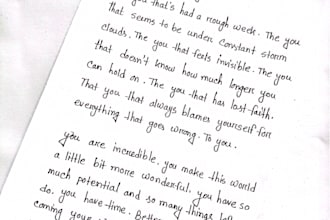 you that's had a rough week. The you
that seems to be under constant storm
clouds. The you that feels invisible. The you
that doesn't know how much longer you
can hold on. The you that has lost faith.
That you that always blames yourself for
everything that goes wrong. To you.
you are incredible. you make this world
a little bit more wonderful. you have so
much potential and so many things left
do. you have time. Better
coming your